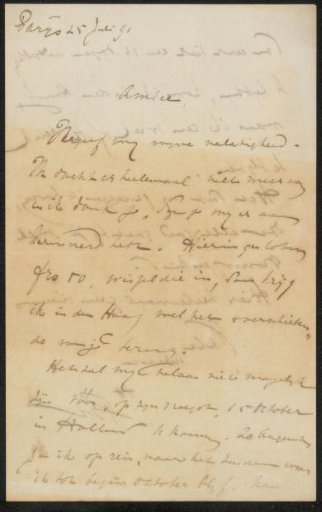 Parijs 25 Juli 91
Amice,
Vergeef mij mijne nalatigheid.
Ik dacht er heelemaal niet meer aan
en ik dank je, dat je mij er aan
herinnerd hebt. Hierin gesloten
frs 50, wissel die in, dan krijg
ik in den Haag wel het overschieten-
de van je terug.
Het zal mij helaas niet mogelijk
zijn vóór, op zijn vroegst, 15 October
in Holland te komen. 20 Augustus
ga ik op reis, naar het Zuiden waar
ik tot begin October blijf.